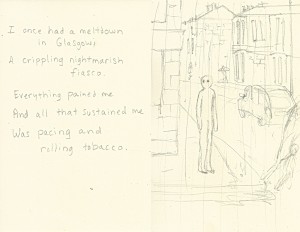 I once had a meltdown
in Glasgow:
A crippling nightmarish
fiasco.
Everything pained me
And all that sustained me
Was pacing and
rolling tobacco.